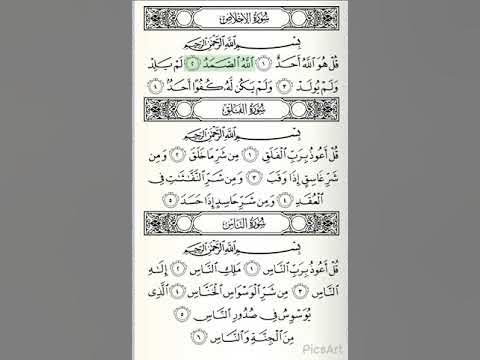 سُورَةُ الإِخْلَاصِ
بِسْمِ ٱللَّهِ ٱلرَّحْمَٰنِ ٱلرَّحِيمِ
قُلْ هُوَ ٱللَّهُ أَحَدٌ ١ ٱللَّهُ ٱلصَّمَدُ ٢ لَمْ يَلِدْ
وَلَمْ يُولَدْ ٣ وَلَمْ يَكُن لَّهُۥ كُفُوًا أَحَدٌۢ ٤
سُورَةُ الفَلَقِ
بِسْمِ ٱللَّهِ ٱلرَّحْمَٰنِ ٱلرَّحِيمِ
قُلْ أَعُوذُ بِرَبِّ ٱلْفَلَقِ ١ مِن شَرِّ مَا خَلَقَ ٢ وَمِن
شَرِّ غَاسِقٍ إِذَا وَقَبَ ٣ وَمِن شَرِّ ٱلنَّفَّٰثَٰتِ فِى
ٱلْعُقَدِ ٤ وَمِن شَرِّ حَاسِدٍ إِذَا حَسَدَ ٥
سُورَةُ النَّاسِ
بِسْمِ ٱللَّهِ ٱلرَّحْمَٰنِ ٱلرَّحِيمِ
قُلْ أَعُوذُ بِرَبِّ ٱلنَّاسِ ١ مَلِكِ ٱلنَّاسِ ٢ إِلَٰهِ
ٱلنَّاسِ ٣ مِن شَرِّ ٱلْوَسْوَاسِ ٱلْخَنَّاسِ ٤ ٱلَّذِى
يُوَسْوِسُ فِى صُدُورِ ٱلنَّاسِ ٥
مِنَ ٱلْجِنَّةِ وَٱلنَّاسِ ٦
PicsArt